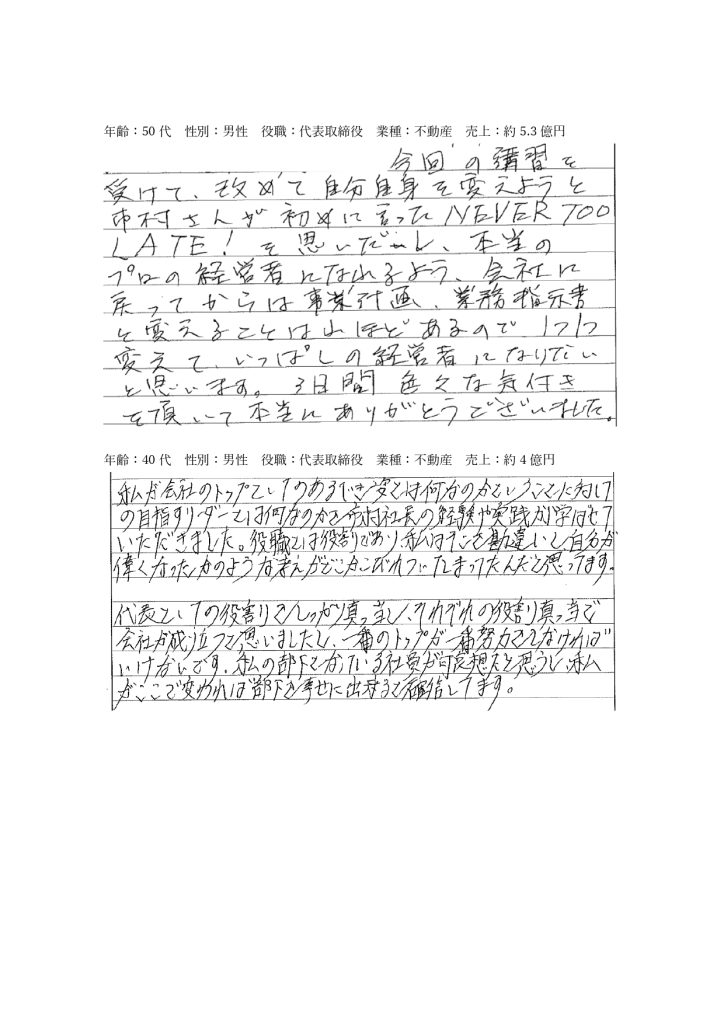 年齢：50代　性別：男性　役職：代表取締役　業種：不動産　売上：約5.3億円
今回の講習を
受けて、改めて自分自身を変えようと
市村さんが初めに言ったNEVER TOO
LATE！を思いだし、本当の
プロの経営者になれるよう、会社に
戻ってからは事業計画、業務指示書
と変えることは山ほどあるので1つ1つ
変えて、いっぱしの経営者になりたい
と思います。3日間色々な気付き
を頂いて本当にありがとうございました。
年齢：40代　性別：男性　役職：代表取締役　業種：不動産　売上：約4億円
私が会社のトップとしてのあるべき姿とは何なのかということに対して
の目指すリーダーとは何なのかを市村社長の経験や実践から学ばせて
いただきました。役職とは役割であり、私はそこを勘違いし自分が
偉くなったかのような考えがどこかこびれついてしまってたんだと思ってます。
代表としての役割りをしっかり真っ当し、それぞれの役割り真っ当で
会社が成り立つと思いましたし、一番のトップが一番努力をしなければ
いけないです。私の部下でかっている社員が可哀想だと思うし、私
がここで変われば部下を幸せに出来ると確信してます。